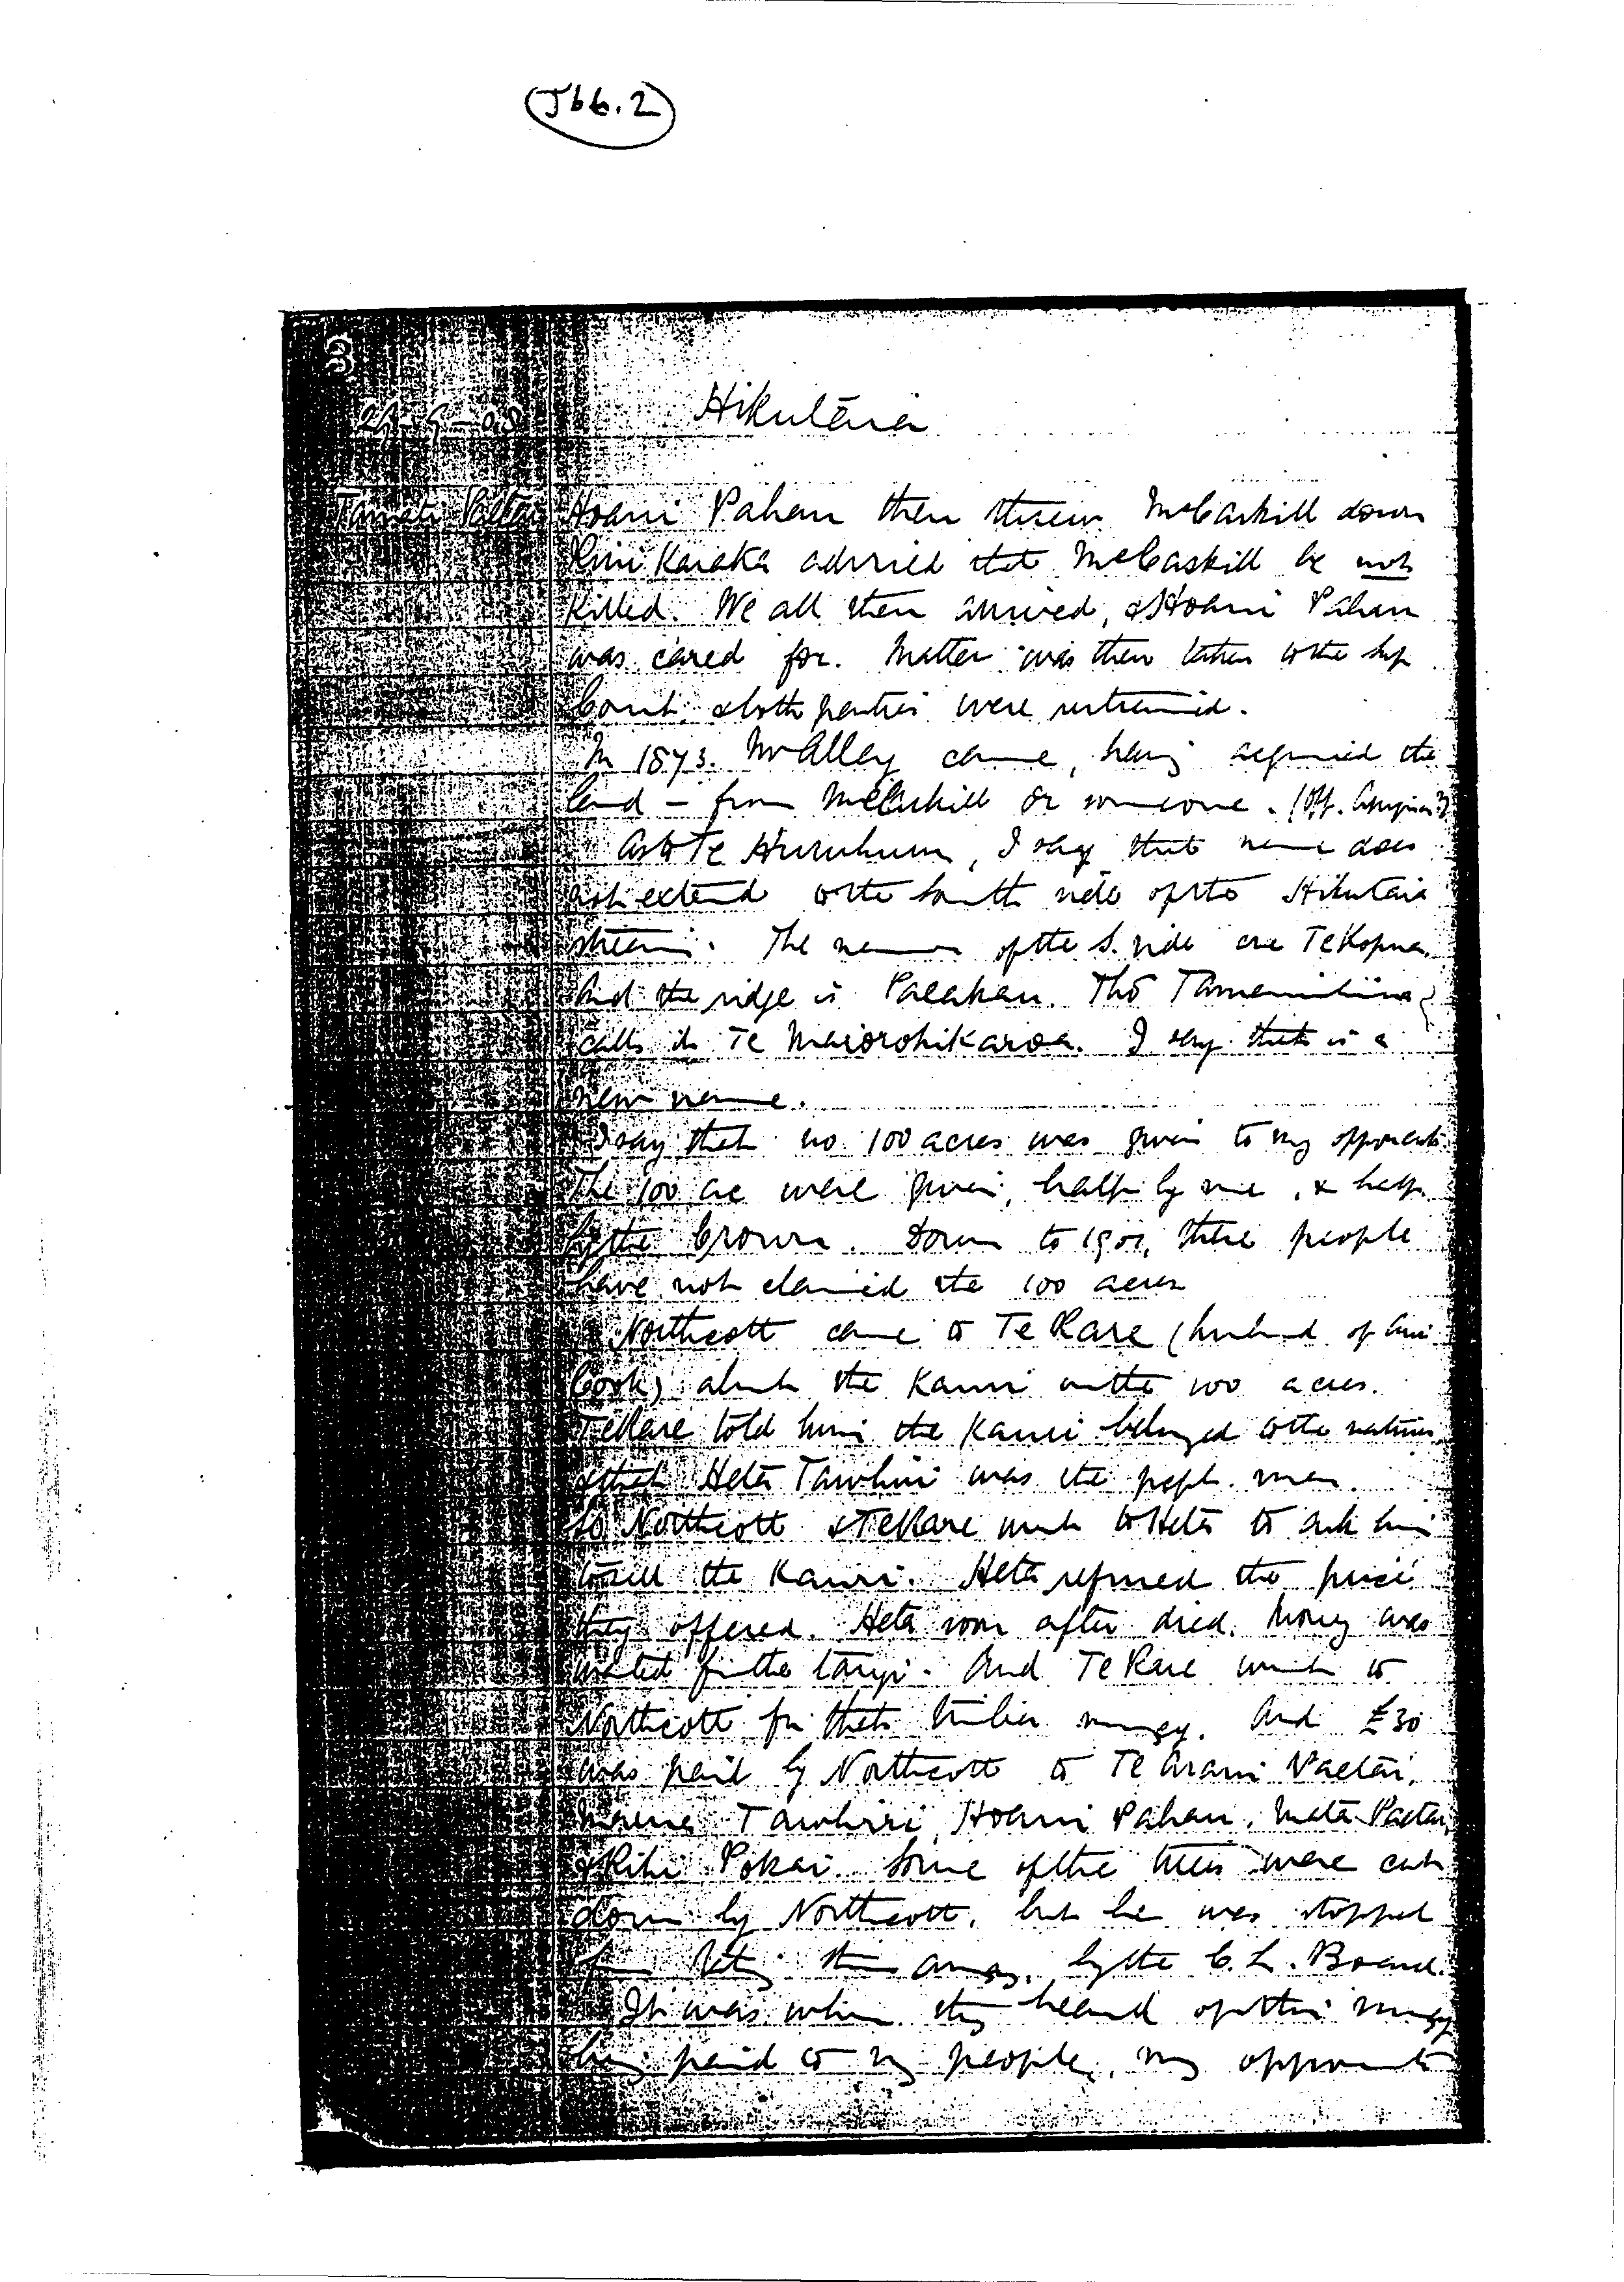 (J66.2)
Hikutaia
Tamati Paetai Hoani Pahau then threw McCaskill down
Rini Karaka advised that McCaskill be not
killed. We all then arrived, & Hoani Pahau
was cared for. Matter was then taken to the Sup
Court & both parties were restrained.
In 1873. Mr Alley came, having acquired the
land - from McCaskill or someone.
As to Te Huruhuru, I say that name does
not extend to the South side of the Hikutaia
stream. The names of the S. side are Te Kopua
And the ridge is Paeahau. Tho
calls it Te Maiorohikaroa. I say that is a
new name.
I say that no 100 acres was given to my opponents.
The 100 ac were given, half by me, & half
by the Crown. Down to 1901, these people
have not claimed the 100 acres
Northcott came to Te Rare (husband of
Cook) about the Kauri on the 100 acres.
Te Rare told him the Kauri belonged to the natives
& that Heta Tawhiri was the proper man.
So Northcott & Te Rare went to Heta to ask him
to sell the Kauri. Heta refused the price
they offered. Heta soon after died. Money was
wanted for the tangi. And Te Rare went to
Northcott for that timber money. And £30
was paid by Northcott to Te Arani Paetai,
Tawhiri, Hoani Pahau, Mata Paetai,
& Rihi Pokai. Some of the trees were cut
down by Northcott, but he was stopped
from taking them away, by the C. L. Board.
It was when they heard of this money
being paid to my people, my opponents